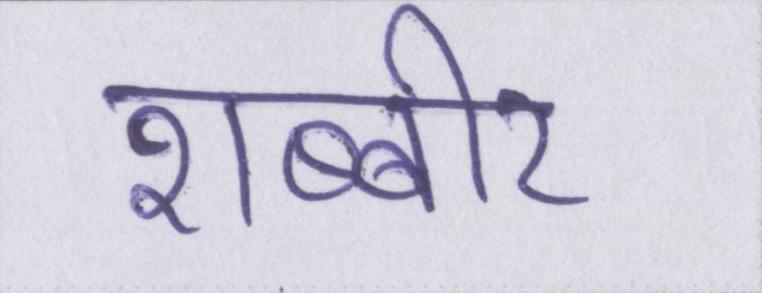 शब्बीर